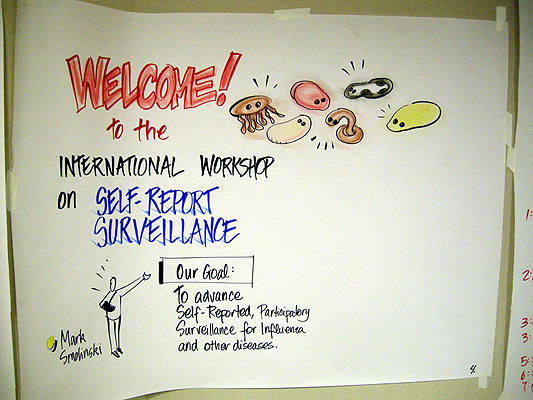 WELCOME!
to the
INTERNATIONAL WORKSHOP
on SELF-REPORT
SURVEILLANCE
Our Goal:
To advance
Self-Reported, Participatory
Surveillance for Influenza
and other diseases.
Mark
Smolinski
1:
2:
3:
3:
5:
6:
7: